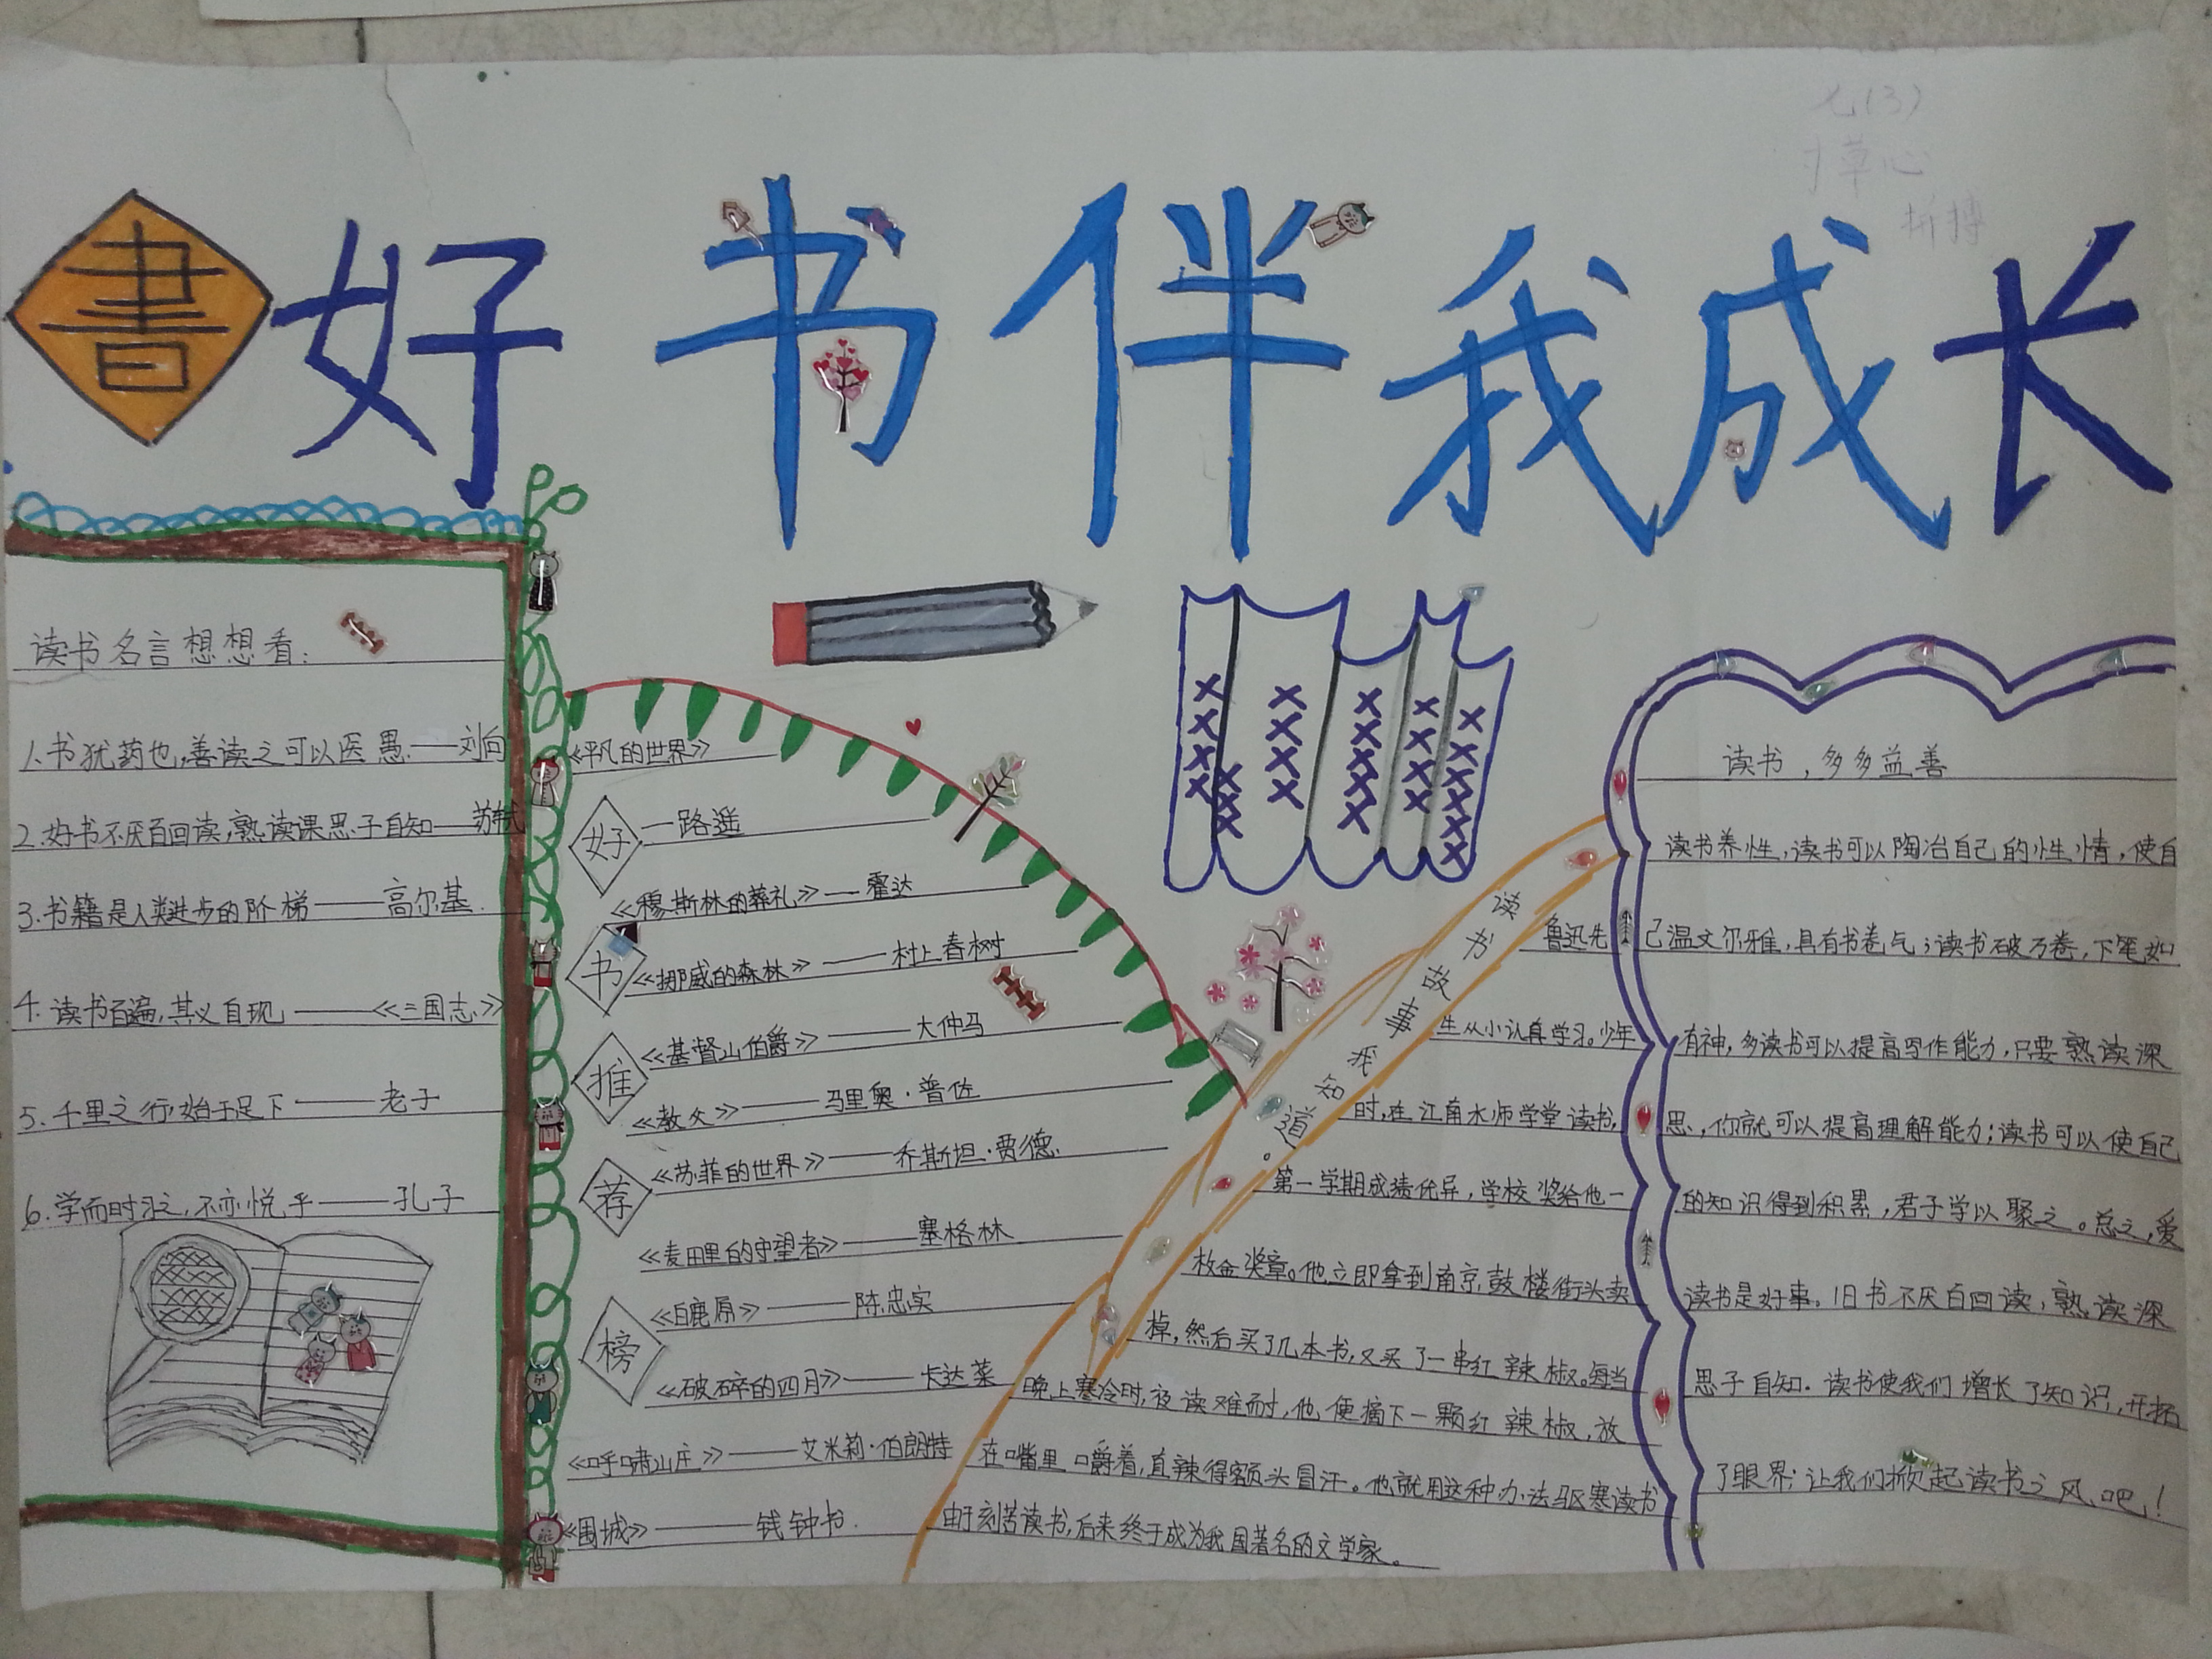 七(3)
寸草心
書
好书伴我成长
读书名言想想看:
1.书犹药也,善读之可以医愚——刘向
2.好书不厌百回读,熟读课思子自知——苏轼
3.书籍是人类进步的阶梯——高尔基.
4.读书百遍,其义自现——《三国志》
5.千里之行始于足下——老子
6.学而时习之,不亦悦乎——孔子
好书推荐榜
《平凡的世界》
——路遥
《穆斯林的葬礼》——霍达
《挪威的森林》——村上春树
《基督山伯爵》——大仲马
《教父》——马里奥·普佐
《苏菲的世界》——乔斯坦·贾德.
《麦田里的守望者》——塞格林
《白鹿原》——陈忠实
《破碎的四月》——卡达莱
《呼啸山庄》——艾米莉·伯朗特
《围城》——钱钟书.
读书故事我知道。
鲁迅先
生从小认真学习。少年
时,在江南水师学堂读书,
第一学期成绩优异,学校奖给他一
枚金奖章。他立即拿到南京鼓楼街头卖
掉,然后买了几本书,又买了一串红辣椒。每当
晚上寒冷时,夜读难耐,他便摘下一颗红辣椒,放
在嘴里嚼着,直辣得额头冒汗。他就用这种办法驱寒读书
由于刻苦读书,后来终于成为我国著名的文学家。
读书,多多益善
读书养性,读书可以陶冶自己的性情,使自
己温文尔雅,具有书卷气;读书破万卷,下笔如
有神,多读书可以提高写作能力,只要熟读深
思,你就可以提高理解能力;读书可以使自己
的知识得到积累,君子学以聚之。总之,爱
读书是好事。旧书不厌百回读,熟读深
思子自知.读书使我们增长了知识,开拓
了眼界;让我们掀起读书之风吧!